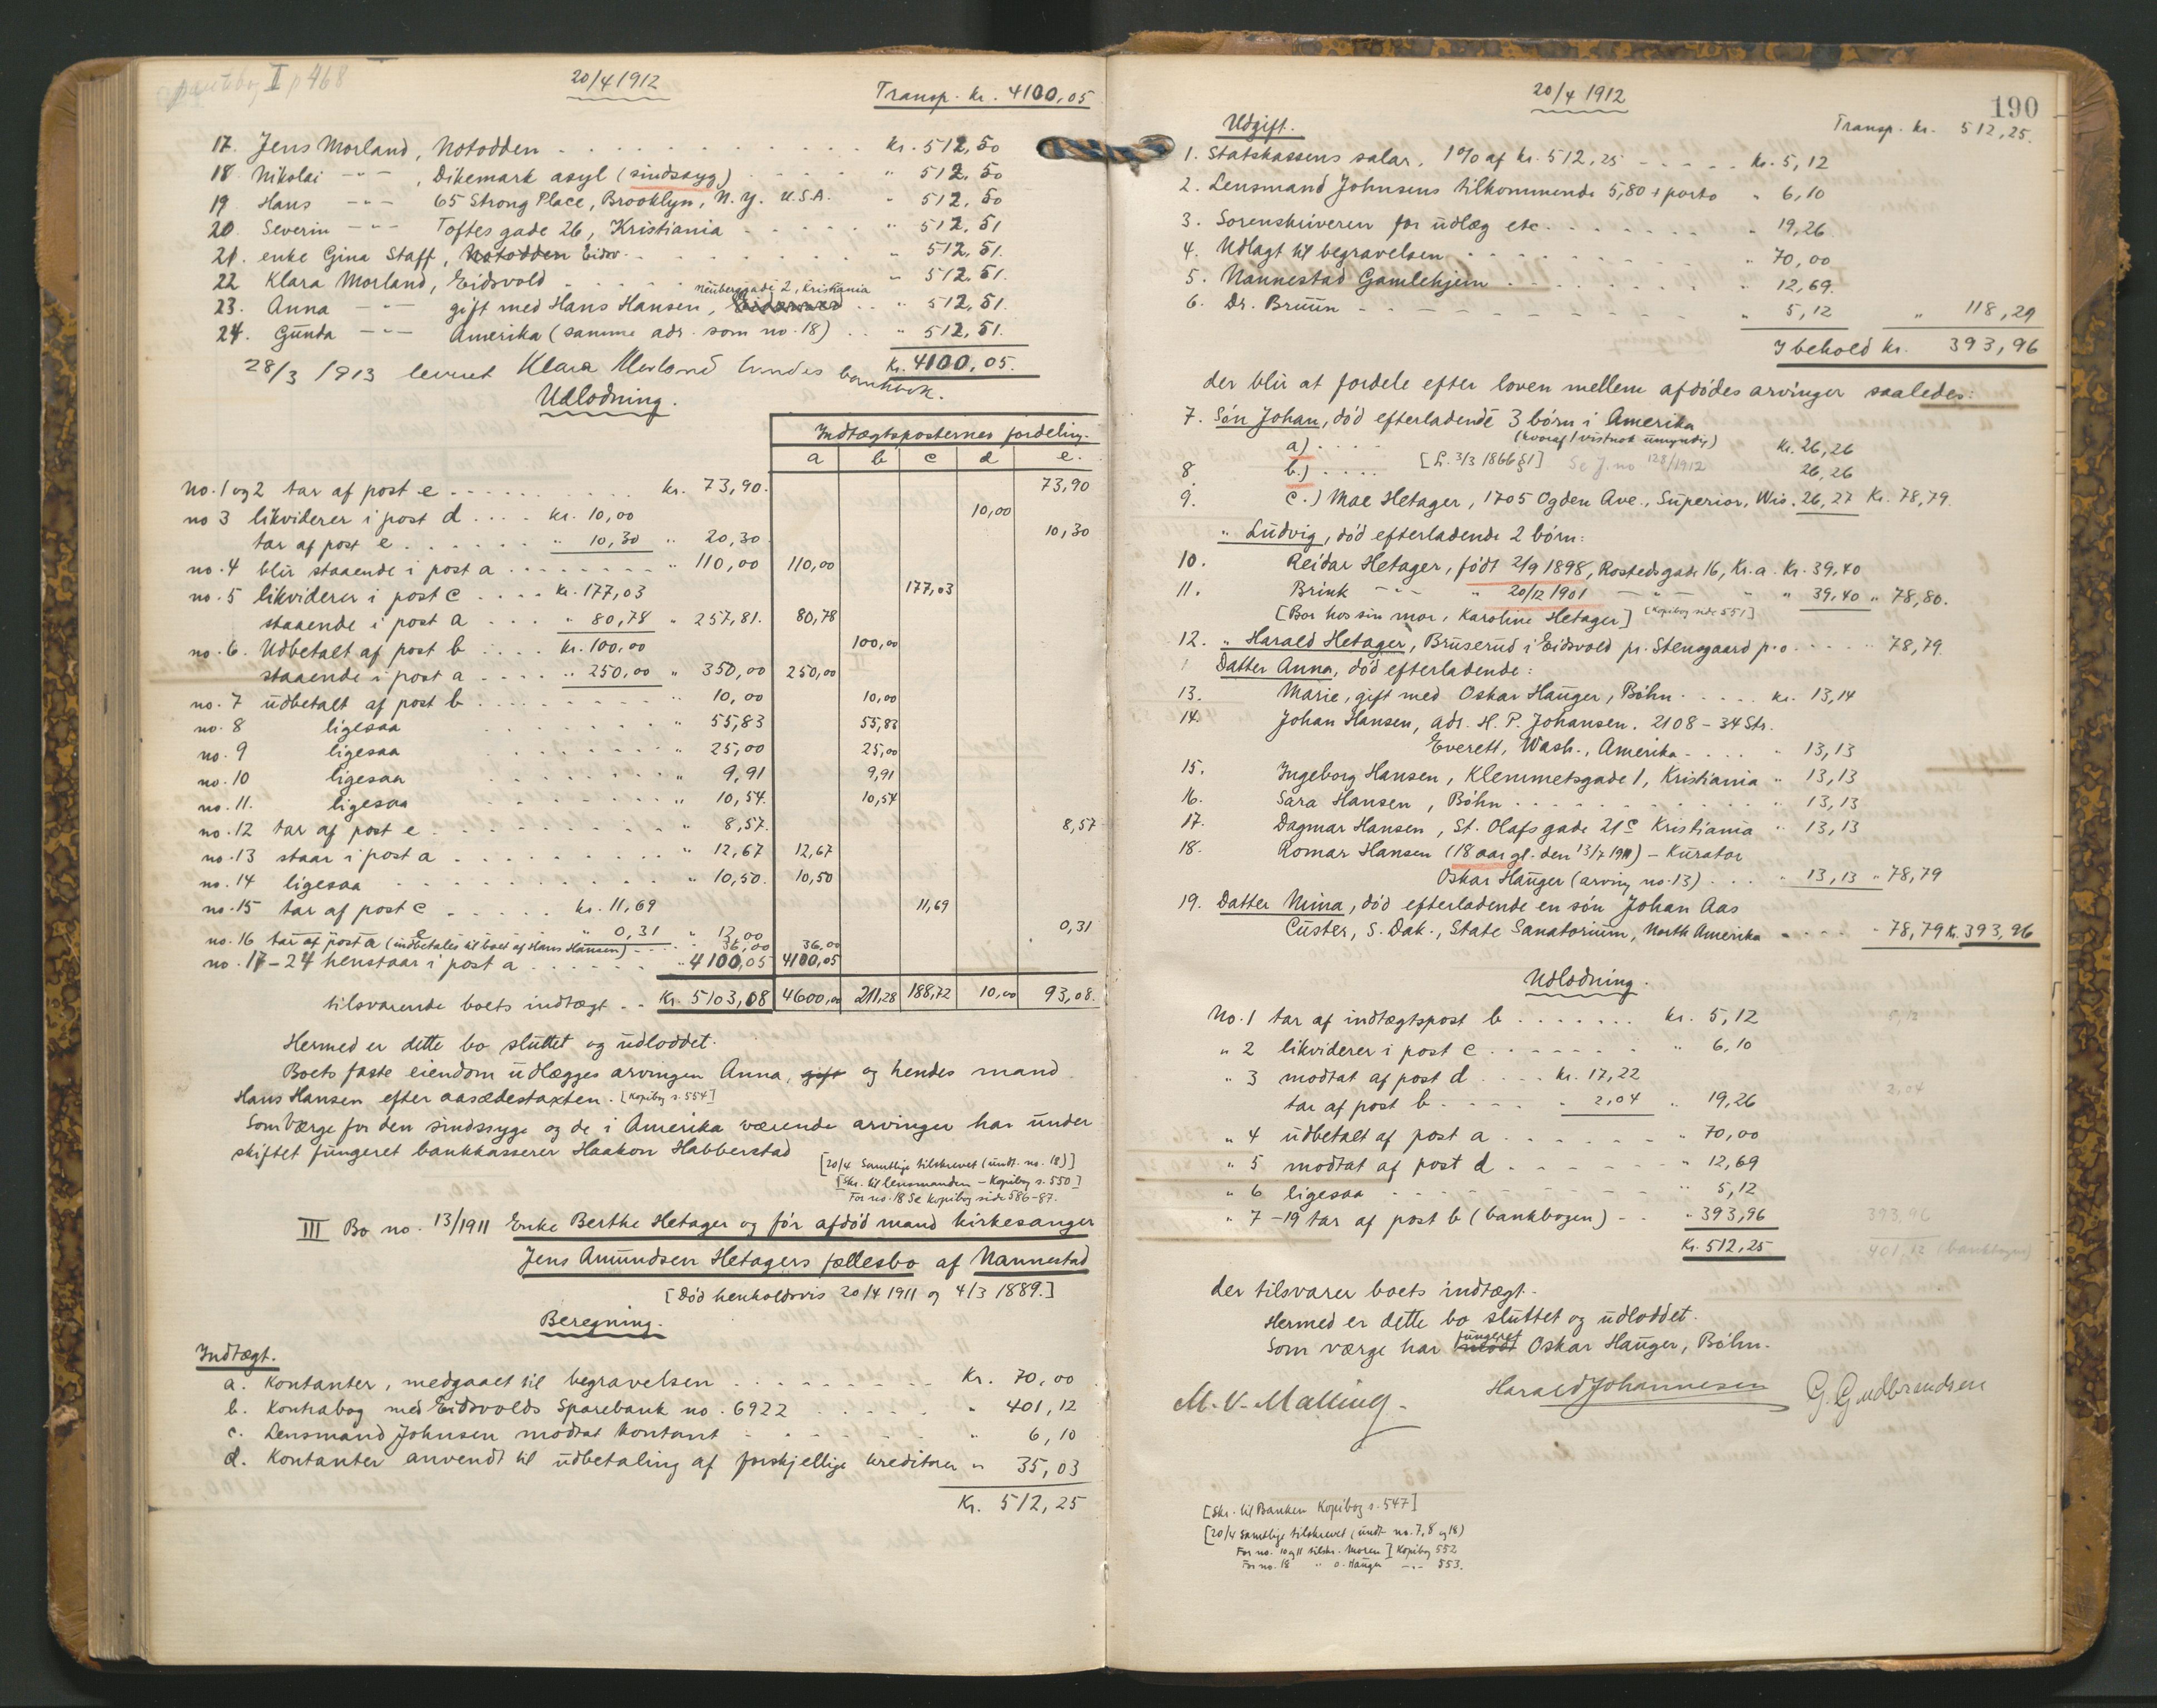 pantebog II p 468
20/4 1912
Transp. kr. 4100,05
17. Jens Morland, Notodden . . . . kr. 512,50
18 Nikolai -"- , Dikemark asyl (sindssyg) . . . " 512,50
19 Hans -"- 65 Strong Place, Brooklyn, N.Y. U.S.A. " 512,50
20. Severin -"- Toftes gade 26, Kristiania . . . " 512,51
21. enke Gina Staff, Notodden Eidsv. . . . " 512,51.
22 Klara Morland, Eidsvold . . . " 512,51.
neuberggade 2, Kristiania
23. Anna -"- gift med Hans Hansen, Eidsvold . . " 512,51.
24. Gunda -"- Amerika (samme adr. som no. 18) . . " 512,51.
Kr. 4100,05.
28/3 1913 leveret Klara Morland hendes bankbok.
Udlodning.
Indtægtsposternes fordeling.
a b c d e.
no. 1 og 2 tar af post e . . . kr. 73,90. 73,90
no 3 likviderer i post d . . . kr. 10,00 10,00
tar af post e . . . " 10,30 " 20,30 10,30
no. 4 blir staaende i post a . . . " 110,00 110,00
no. 5 likviderer i post c . . . kr. 177,03 177,03
staaende i post a . . . " 80,78 " 257,81. 80,78
no. 6. Udbetalt af post b . . . kr. 100,00 100,00
staaende i post a . . . " 250,00 " 350,00 250,00
no. 7 udbetalt af post b . . . " 10,00 10,00
no. 8 ligesaa . . . " 55,83 55,83
no. 9 ligesaa . . . " 25,00 25,00
no. 10 ligesaa . . . " 9,91 9,91
no. 11. ligesaa . . . " 10,54. 10,54
no. 12 tar af post e . . . " 8,57. 8,57
no. 13 staar i post a . . . " 12,67 12,67
no. 14 ligesaa . . . " 10,50. 10,50
no. 15 tar af post c . . . kr. 11,69 11,69
e " 0,31 " 12,00 0,31
no. 16 tar af post a (indbetales til boet af Hans Hansen) . . . " 36,00 36,00
no. 17-24 henstaar i post a . . . " 4100,05 4100,05
tilsvarende boets indtægt . . Kr. 5103,08 4600,00 211,28 188,72 10,00 93,08.
Hermed er dette bo sluttet og udloddet.
Boets faste eiendom udlægges arvingen Anna, gift og hendes mand
Hans Hansen efter aasædestaxten. [Kopibog s. 554]
Som værge for den sindssyge og de i Amerika værende arvinger har under
skiftet fungeret bankkasserer Haakon Habberstad
[20/4 Samtlige tilskrevet (undt. no. 18)]
[Skr. til lensmanden - Kopibog s. 550]
For no. 18 Se Kopibog side 586-87.
III Bo no. 13/1911 Enke Berthe Hetager og før afdød mand kirkesanger
Jens Amundsen Hetagers fællesbo af Nannestad
[Død henholdsvis 20/4 1911 og 4/3 1889.]
Beregning.
Indtægt.
a. Kontanter, medgaaet til begravelsen . . . Kr. 70,00
b. Kontrabog med Eidsvolds Sparebank no. 6922 . . . " 401,12
c. Lensmand Johnsen modtat kontant . . . " 6,10
d. Kontanter anvendt til udbetaling af forskjellige kreditorer " 35,03
Kr. 512,25
20/4 1912
190
Transp. kr. 512,25.
Udgift.
1. Statskassens salar, 1% af kr. 512,25 . . . kr. 5,12
2. Lensmand Johnsens tilkommende 5,80 + porto " 6,10
3. Sorenskriveren for udlæg etc. . . . " 19,26
4. Udlagt til begravelsen . . . " 70,00
5. Nannestad Gamlehjem . . . " 12,69.
6. Dr. Bruun . . . " 5,12 " 118,29
I behold kr. 393,96
der blir at fordele efter loven mellem afdødes arvinger saaledes:
7. Søn Johan, død efterladende 3 børn i Amerika
(hvoraf 1 vistnok umyndig)
a) . . . Kr. 26,26
[L. 3/3 1866 §1] Se J. no 128/1912
8. b.) . . . 26,26
9. c.) Mae Hetager, 1705 Ogden Ave., Superior, Wis. 26,27 Kr. 78,79.
" Ludvig, død efterladende 2 børn:
10. Reidar Hetager, født 2/9 1898, Rostedsgade 16, Kr.a. Kr. 39,40
11. Brink -"- " 20/12 1901 -"- " " 39,40 " 78,80.
[Bor hos sin mor, Karoline Hetager] [Kopibog side 551]
12. " Harald Hetager, Bruserud i Eidsvold pr. Stensgaard p.o. . . . " 78,79.
Datter Anna, død efterladende:
13. Marie, gift med Oskar Hauger, Bøhn . . . kr. 13,14
14. Johan Hansen, adr. H. P. Johansen. 2108 - 34 Str.
Everett, Wash., Amerika . . . " 13,13
15. Ingeborg Hansen, Klemmetsgade 1, Kristiania " 13,13
16. Sara Hansen, Bøhn . . . " 13,13
17. Dagmar Hansen, St. Olafs gade 21c Kristiania " 13,13
18. Romar Hansen (18 aar gl. den 13/7 1911) - Kurator
Oskar Hauger (arving no. 13) . . . " 13,13 " 78,79
19. Datter Mina, død efterladende en søn Johan Aas
Custer, S. Dak., State Sanatorium, North Amerika . . . " 78,79 Kr. 393,96
Udlodning.
No. 1 tar af indtægtspost b . . . kr. 5,12
" 2 likviderer i post c . . . " 6,10
" 3 modtat af post d . . . kr. 17,22
tar af post b . . . " 2,04 " 19,26 2,04
" 4 udbetalt af post a . . . " 70,00
" 5 modtat af post d . . . " 12,69
" 6 ligesaa . . . " 5,12
" 7-19 tar af post b (bankbogen) . . " 393,96 393,96
Kr. 512,25 401,12 (bankbogen)
der tilsvarer boets indtægt.
Hermed er dette bo sluttet og udloddet.
fungeret
Som værge har Oskar Hauger, Bøhn.
M. V. Malling. Harald Johannesen G. Gudbrandsen
[Skr. til Banken Kopibog s. 547]
[20/4 Samtlige tilskrevet (undt. no. 7, 8 og 18)
For no. 10 og 11 tilskr. Moren] Kopibog 552
For no. 18 " O. Hauger -"- 553.